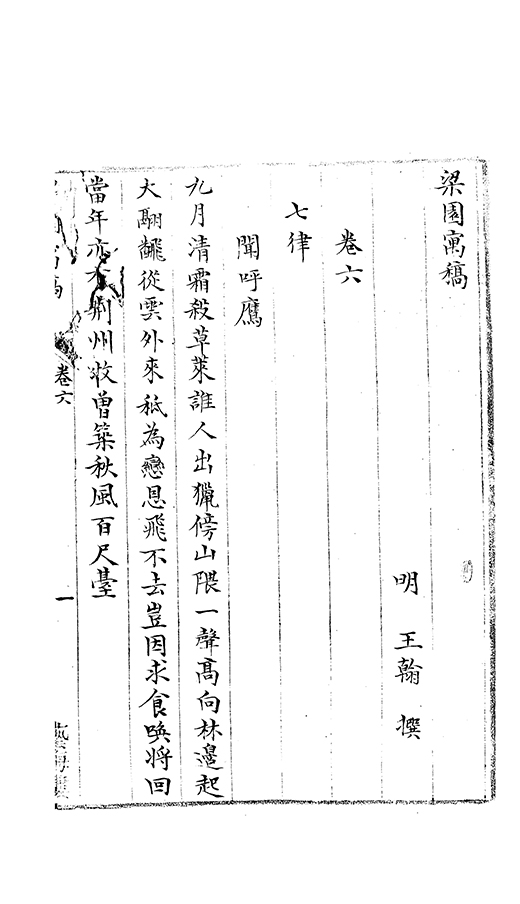 梁園寓稿
明 王翰 撰
卷六
七律
聞呼鷹
九月清霜殺草萊誰人出獵傍山隈一聲髙向林邊起
大翮飜從雲外來秪為戀恩飛不去豈因求食喚將回
當年亦荆州牧曾築秋風百尺臺
稿 卷六 一